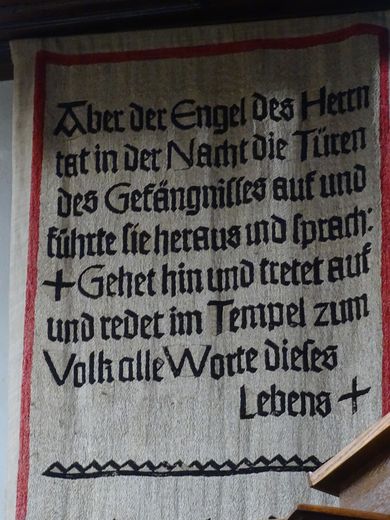 Aber der Engel des Herrn
tat in der Nacht die Türen
des Gefängnisses auf und
führte sie heraus und sprach:
+ Gehet hin und tretet auf
und redet im Tempel zum
Volk alle Worte dieses
Lebens +